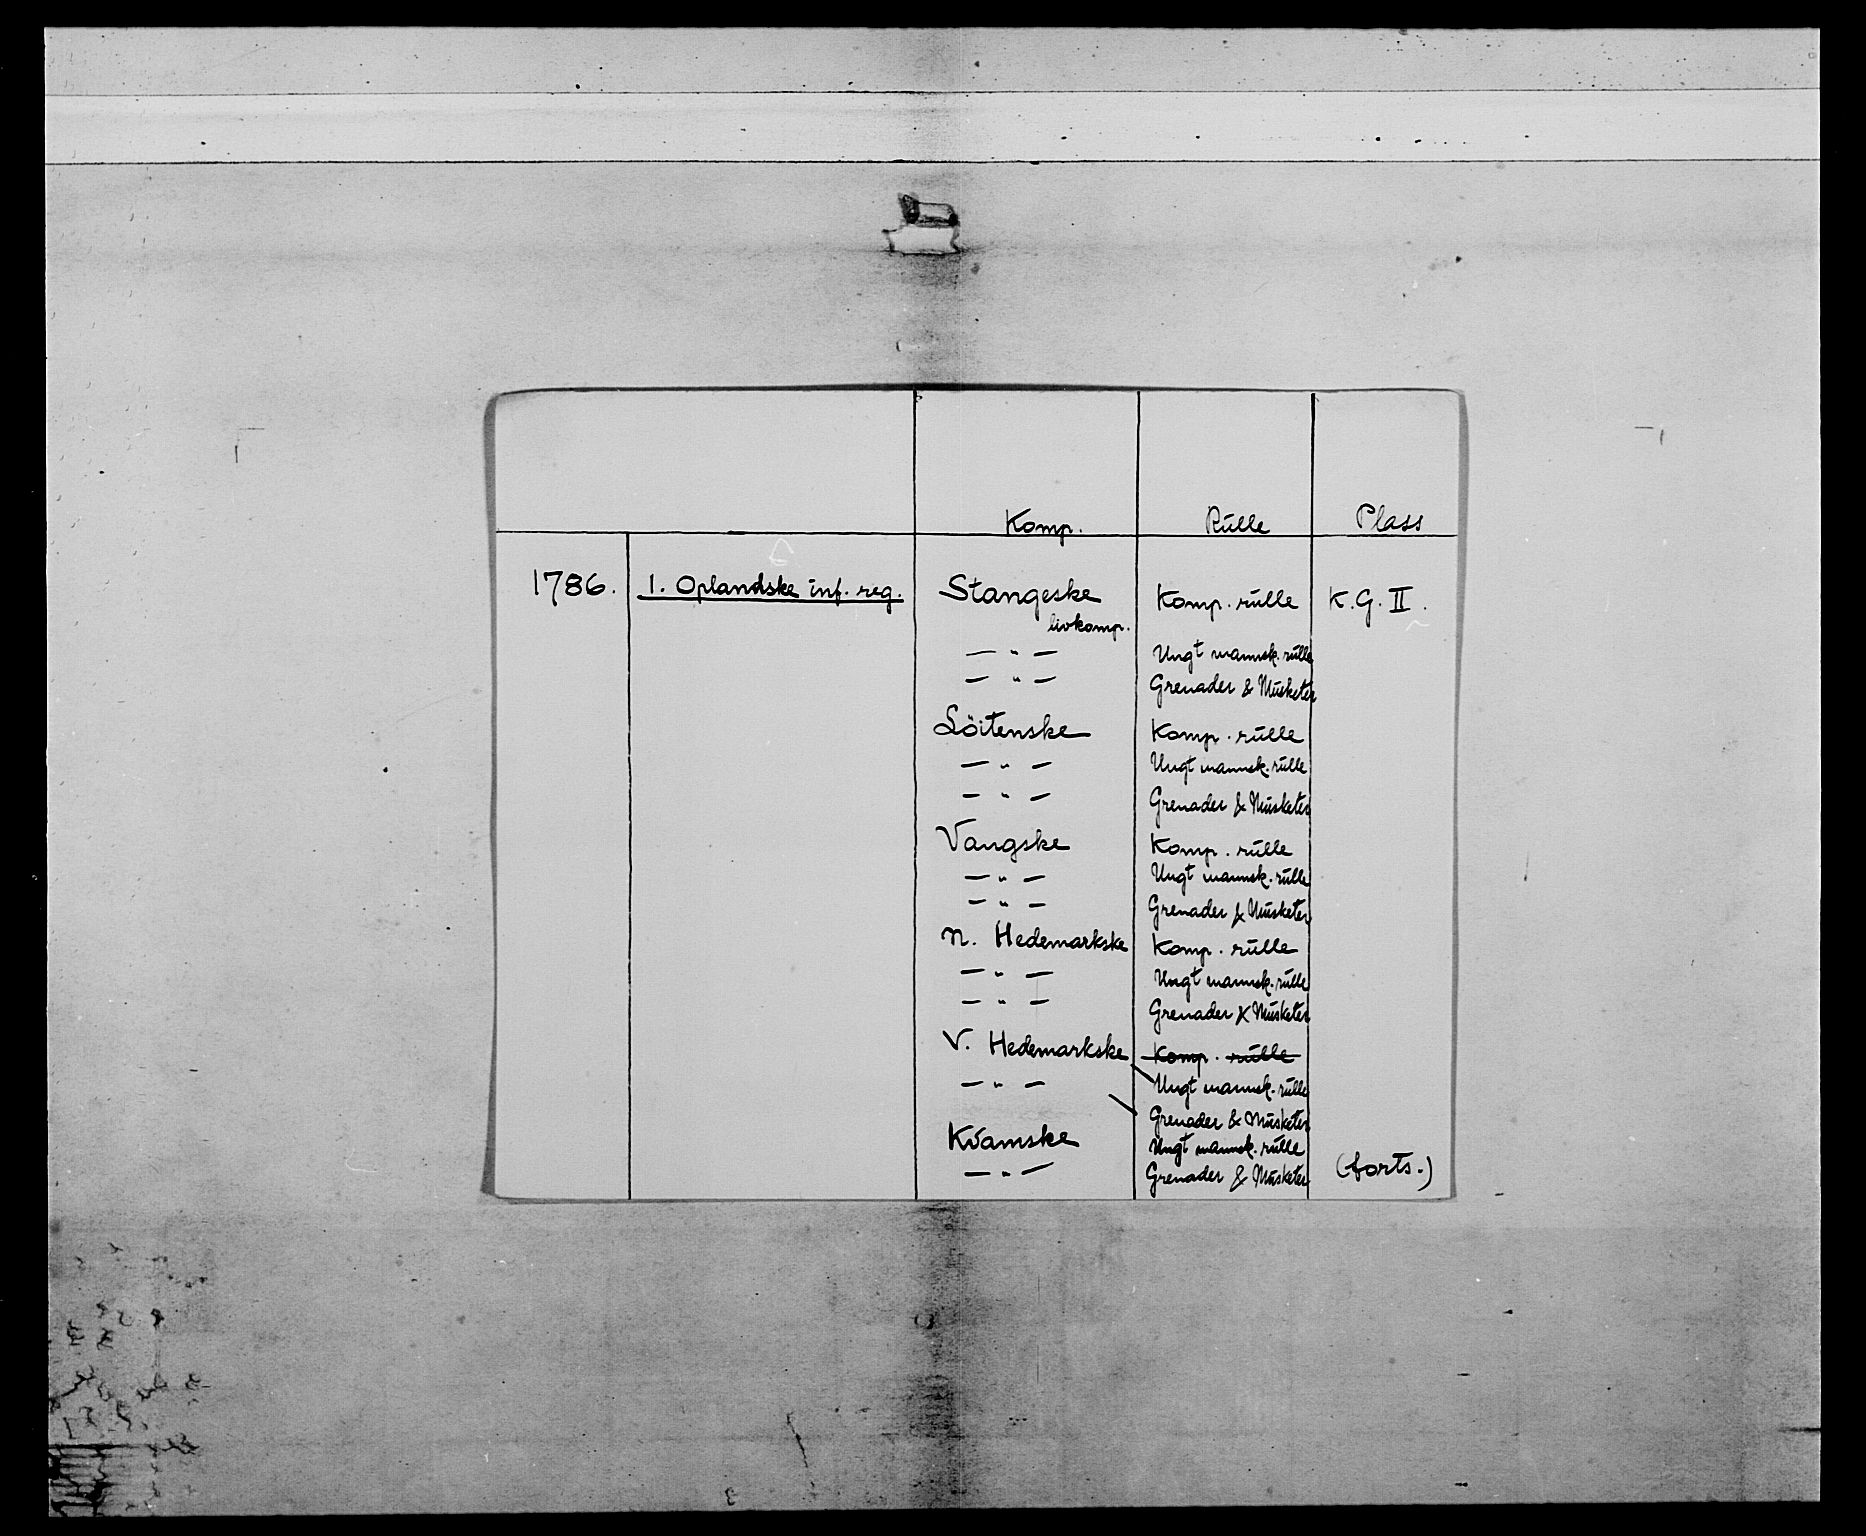 Komp. Rulle Plass
1786. 1. Oplandske inf. reg. Stangeske Komp. rulle K.G. II.
livkomp.
— " — Ungt mannsk. rulle
— " — Grenader & Musketer
Löitenske Komp. rulle
— " — Ungt mannsk. rulle
— " — Grenader & Musketer
Vangske Komp. rulle
— " — Ungt mannsk. rulle
— " — Grenader & Musketer
N. Hedemarkske Komp. rulle
— " — Ungt mannsk. rulle
— " — Grenader & Musketer
V. Hedemarkske Komp. rulle
— " — Ungt mannsk. rulle
Grenader & Musketer
Kvamske Ungt mannsk. rulle
— " — Grenader & Musketer (forts.)